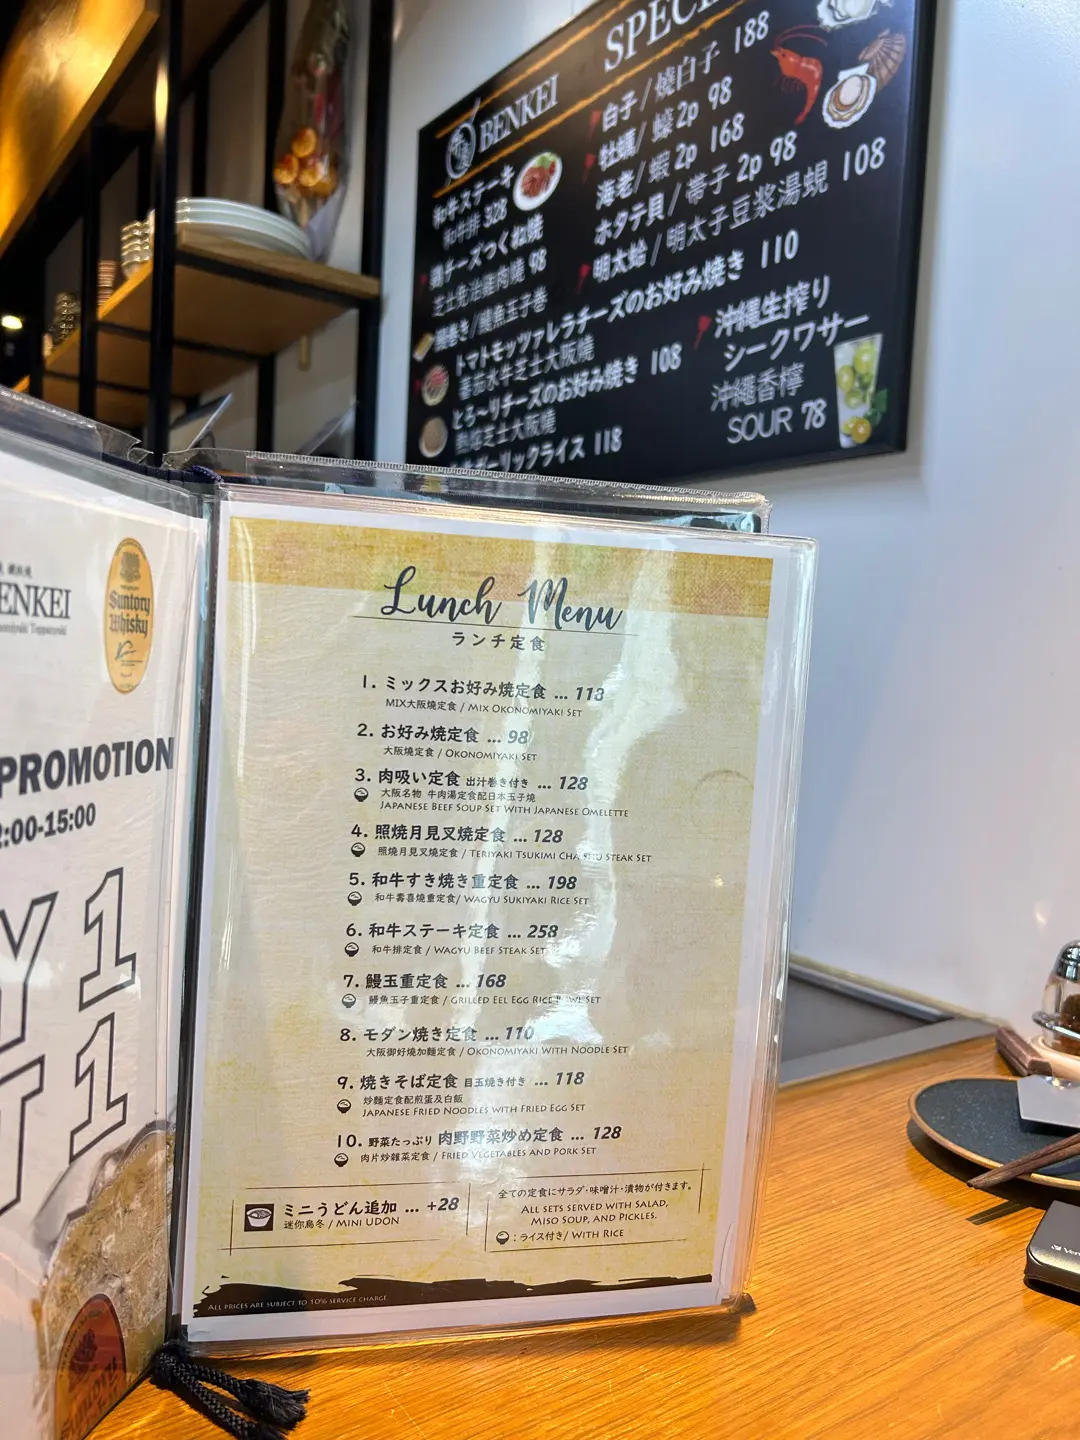 BENKEI
SPECI
和牛ステーキ
和牛排 328
鶏チーズつくね焼
芝士免治雞肉燒 98
鰻巻き/鰻魚玉子巻
トマトモッツァレラチーズのお好み焼き 110
蕃茄水牛芝士大阪燒
とろ〜りチーズのお好み焼き 108
芝士大阪燒
ガーリックライス 118
白子/燒白子 188
牡蠣/蠔 2p 98
海老/蝦 2p 168
ホタテ貝/帶子 2p 98
明太蛤/明太子豆漿湯蜆 108
沖縄生搾り
シークワサー
沖繩香檸
SOUR 78
ENKEI
Suntory
Whisky
PROMOTION
:00-15:00
Y 1
T 1
Lunch Menu
ランチ定食
1. ミックスお好み焼定食 ... 118
MIX大阪燒定食 / Mix Okonomiyaki Set
2. お好み焼定食 ... 98
大阪燒定食 / Okonomiyaki Set
3. 肉吸い定食 出汁巻き付き ... 128
大阪名物 牛肉湯定食配日本玉子燒
Japanese Beef Soup Set With Japanese Omelette
4. 照焼月見叉焼定食 ... 128
照燒月見叉燒定食 / Teriyaki Tsukimi Cha Shu Steak Set
5. 和牛すき焼き重定食 ... 198
和牛壽喜燒重定食/ Wagyu Sukiyaki Rice Set
6. 和牛ステーキ定食 ... 258
和牛排定食 / Wagyu Beef Steak Set
7. 鰻玉重定食 ... 168
鰻魚玉子重定食 / Grilled Eel Egg Rice Bowl Set
8. モダン焼き定食 ... 110
大阪御好燒加麵定食 / Okonomiyaki With Noodle Set
9. 焼きそば定食 目玉焼き付き ... 118
炒麵定食配煎蛋及白飯
Japanese Fried Noodles with Fried Egg Set
10. 野菜たっぷり 肉野野菜炒め定食 ... 128
肉片炒雜菜定食 / Fried Vegetables and Pork Set
ミニうどん追加 ... +28
迷你烏冬 / Mini Udon
全ての定食にサラダ・味噌汁・漬物が付きます。
All sets served with Salad,
Miso Soup, and Pickles.
：ライス付き/ With Rice
All prices are subject to 10% service charge